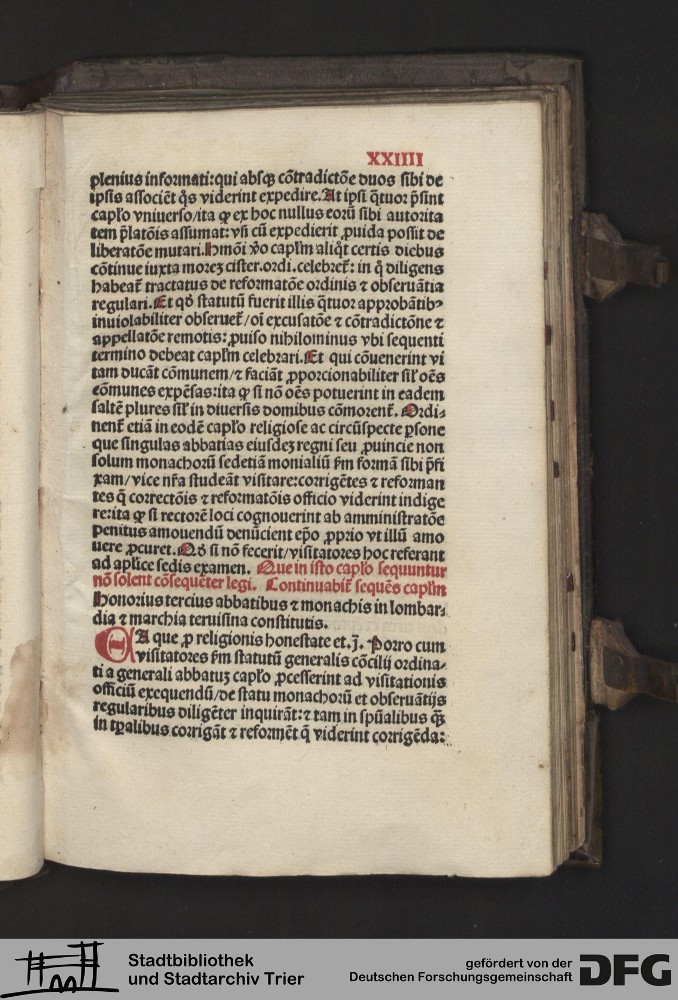 XXIIII
plenius informati:qui absqꝫ cōtradictōe duos sibi de
ipsis associēt q̄s viderint expedire.At ipsi q̄tuor p̄sint
capľo vniuerso/ita ꝙ ex hoc nullus eorū sibi autorita
tem p̄latōis assumat:vñ cū expedierit ꝓuida possit de
liberatōe mutari.Hmōi v̊o capľm aliq̄t certis diebus
cōtinue iuxta morez cister.ordi.celebret᷑: in q̄ diligens
habeat᷑ tractatus de reformatōe ordinis ⁊ obseruātia
regulari.Et qd̓ statutū fuerit illis q̄tuor approbātibꝰ
inuiolabiliter obseruet᷑/oī excusatōe ⁊ cōtradictōne ⁊
appellatōe remotis:ꝓuiso nihilominus vbi sequenti
termino debeat capľm celebrari.Et qui cōuenerint vi
tam ducāt cōmunem/⁊ faciāt ꝓporcionabiliter siľ oēs
cōmunes expēsas:ita ꝙ si nō oēs potuerint in eadem
saltē plures siľ in diuersis domibus cōmorent᷑. Ordi⸗
nent᷑ etiā in eodē capľo religiose ac circūspecte ꝑsone
que singulas abbatias eiusdez regni seu ꝓuincie non
solum monachorū sed etiā monialiū s̓m formā sibi p̄fi
xam/vice nr̄a studeāt visitare:corrigētes ⁊ reforman
tes q̄ correctōis ⁊ reformatōis officio viderint indige
re:ita ꝙ si rectorē loci cognouerint ab amministratōe
penitus amouendū denūcient ep̄o ꝓprio vt illū amo
uere ꝓcuret.Qd̓ si nō fecerit/visitatores hoc referant
ad apľice sedis examen. Que in isto capľo sequuntur
nō solent cōsequēter legi. Continuabit᷑ sequēs capľm
Honorius tercius abbatibus ⁊ monachis in lombar⸗
dia ⁊ marchia teruisina constitutis.
EA que ꝓ religionis honestate et.J. Porro cum
visitatores s̓m statutū generalis cōcilij ordina⸗
ti a generali abbatuꝫ capľo ꝓcesserint ad visitationis
officiū exequendū/de statu monachorū et obseruātijs
regularibus diligēter inquirāt:⁊ tam in sp̄ualibus q̄ꝫ
in tp̄alibus corrigāt ⁊ reformēt q̄ viderint corrigēda:
Stadtbibliothek
und Stadtarchiv Trier
gefördert von der
Deutschen Forschungsgemeinschaft
DFG